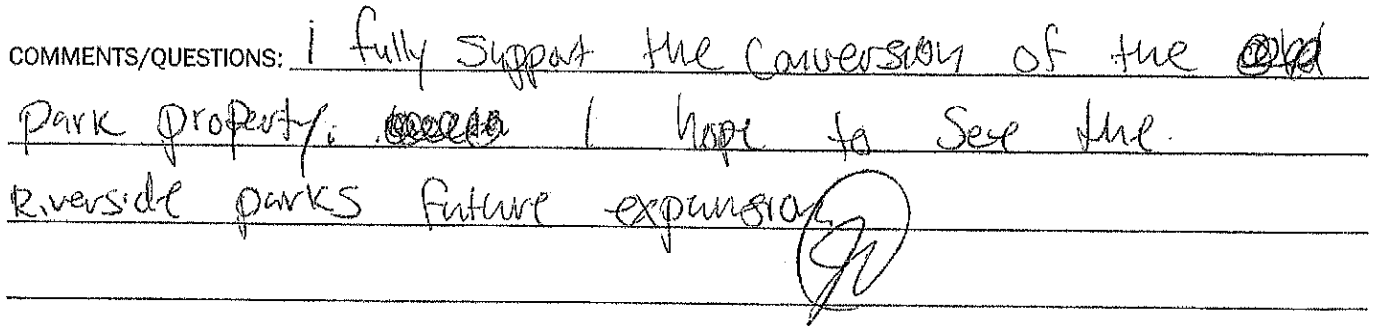 COMMENTS/QUESTIONS: i fully support the conversion of the
park property. I hope to see the
Riverside parks future expansion